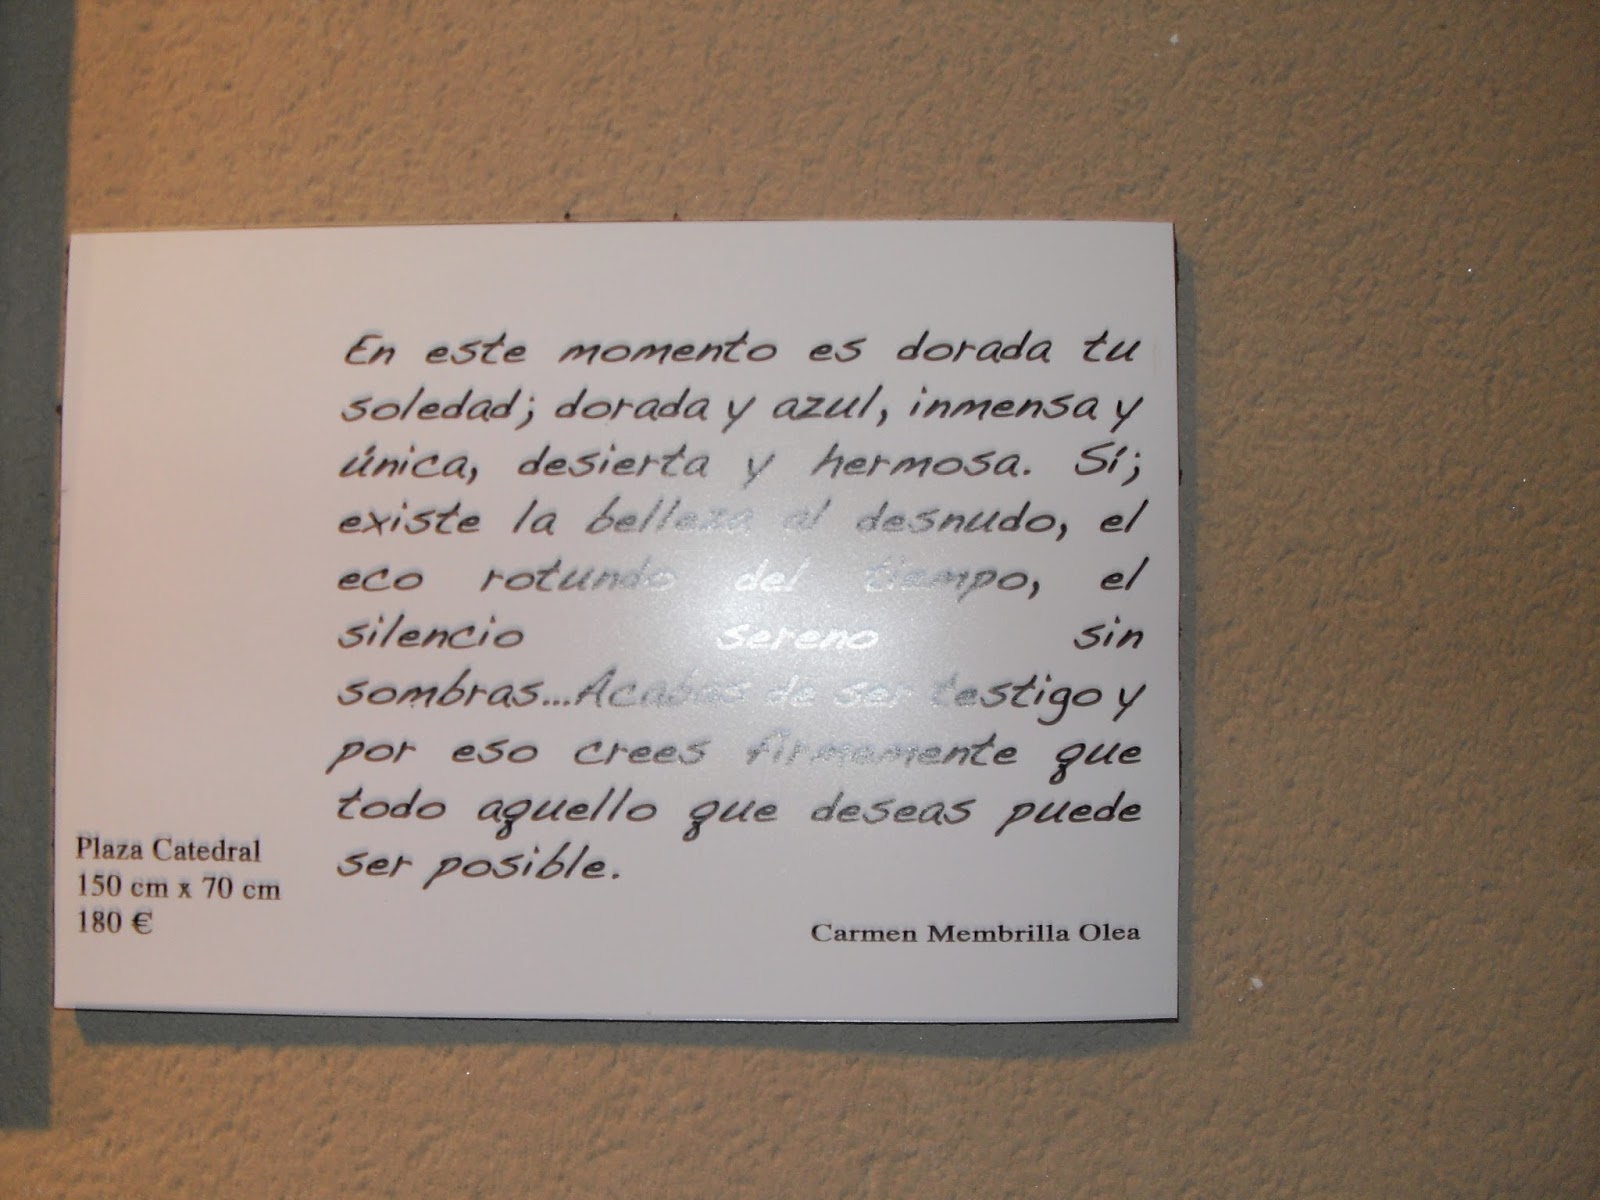 En este momento es dorada tu
soledad; dorada y azul, inmensa y
única, desierta y hermosa. Sí;
existe la belleza al desnudo, el
eco rotundo del tiempo, el
silencio sereno sin
sombras...Acabas de ser testigo y
por eso crees firmemente que
todo aquello que deseas puede
ser posible.
Plaza Catedral
150 cm x 70 cm
180 €
Carmen Membrilla Olea